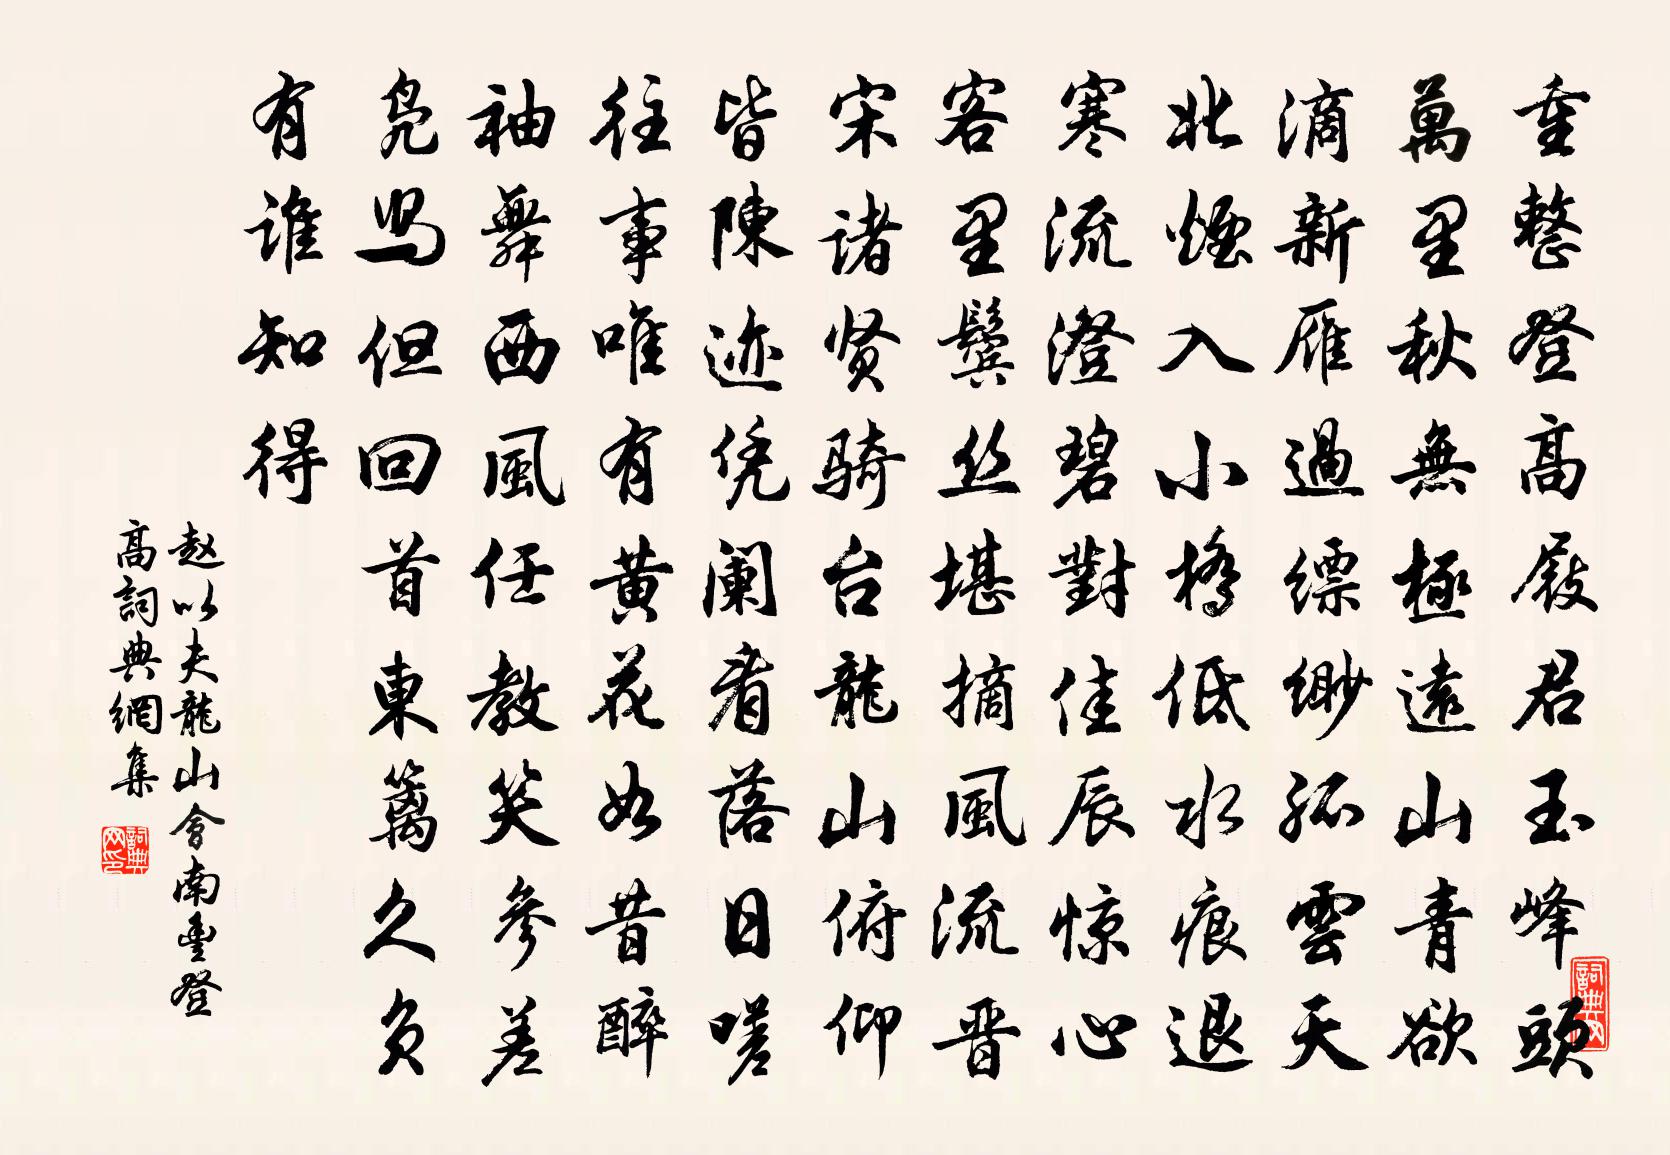 重整登高屐君玉峰頭
萬里秋無極遠山青欲
滴新雁過縹緲孤雲天
北煙入小橋低水痕退
寒流澄碧對佳辰惊心
客里鬓丝堪摘風流晋
宋诸贤骑台龍山俯仰
皆陳迹凭阑看落日嗟
往事唯有黄花如昔醉
袖舞西風任教笑參差
凫舄但回首東篱久負
有谁知得
赵以夫龍山會南豐登
高詞典網集